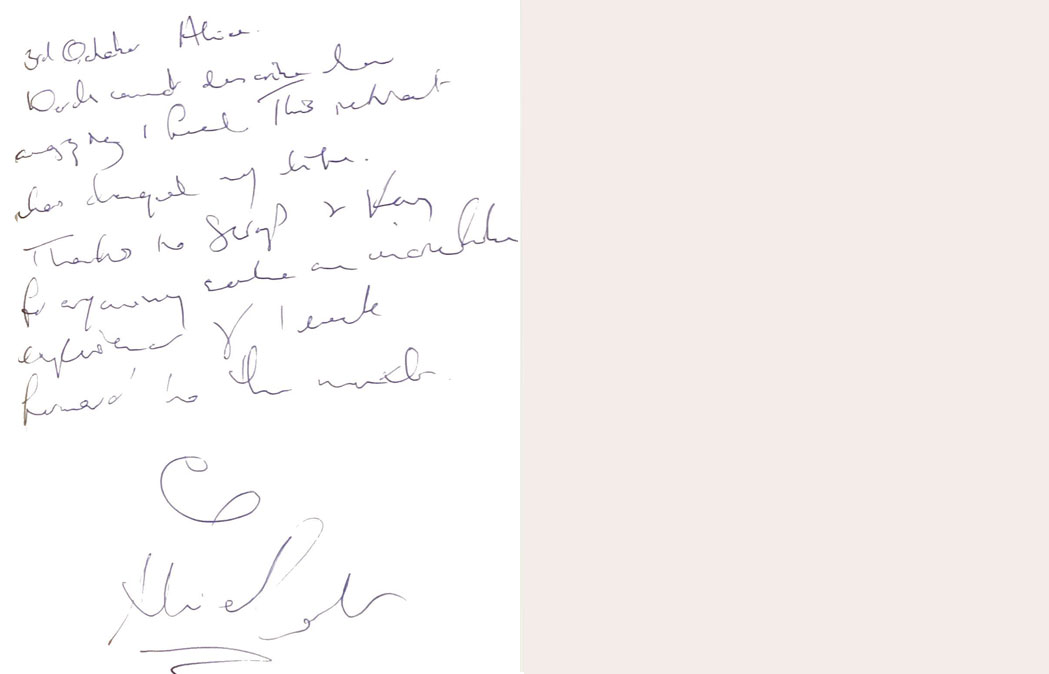 3rd October Alice.
Words cannot describe how
amazing I feel. This retreat
has changed my life.
Thanks to &
for organising such an incredible
experience & I look
forward to the next